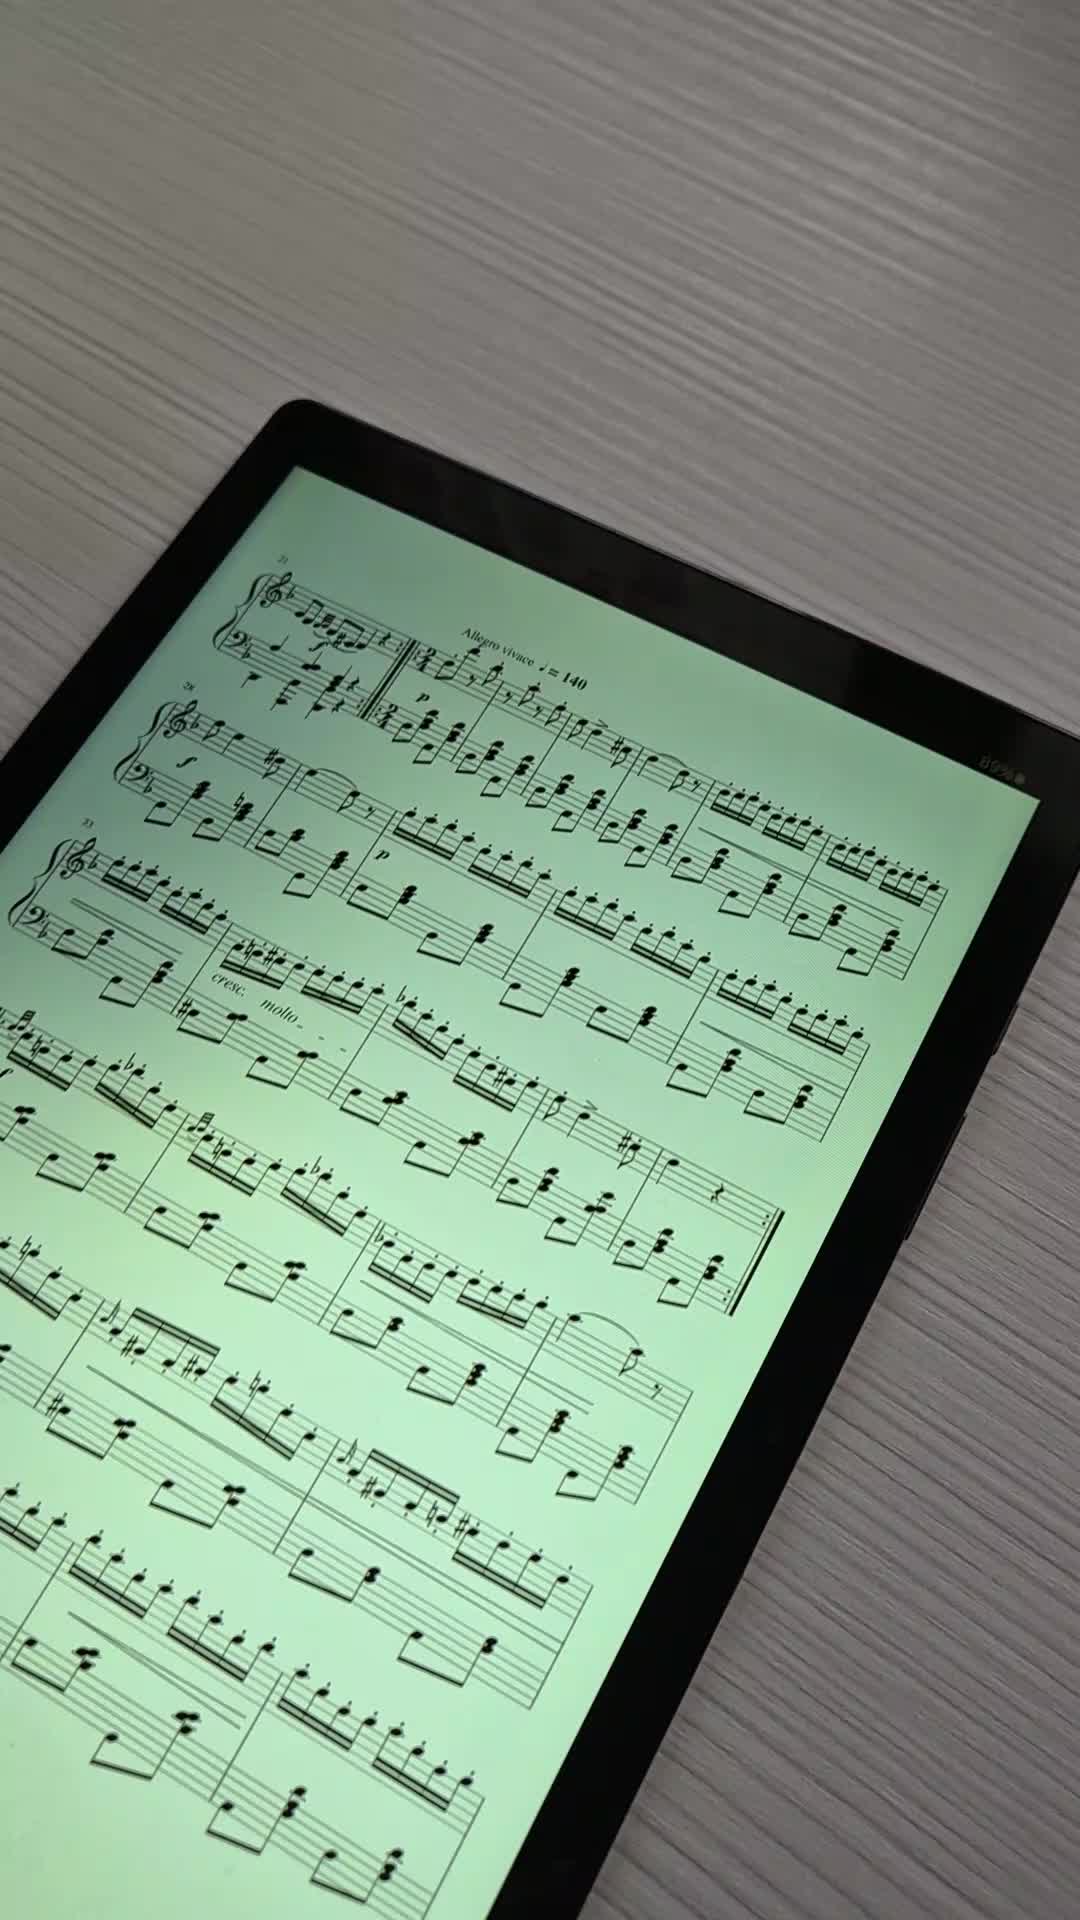 21
Allegro vivace ♩= 140
f
p
28
f
p
33
cresc. molto _ _ _
f
89%